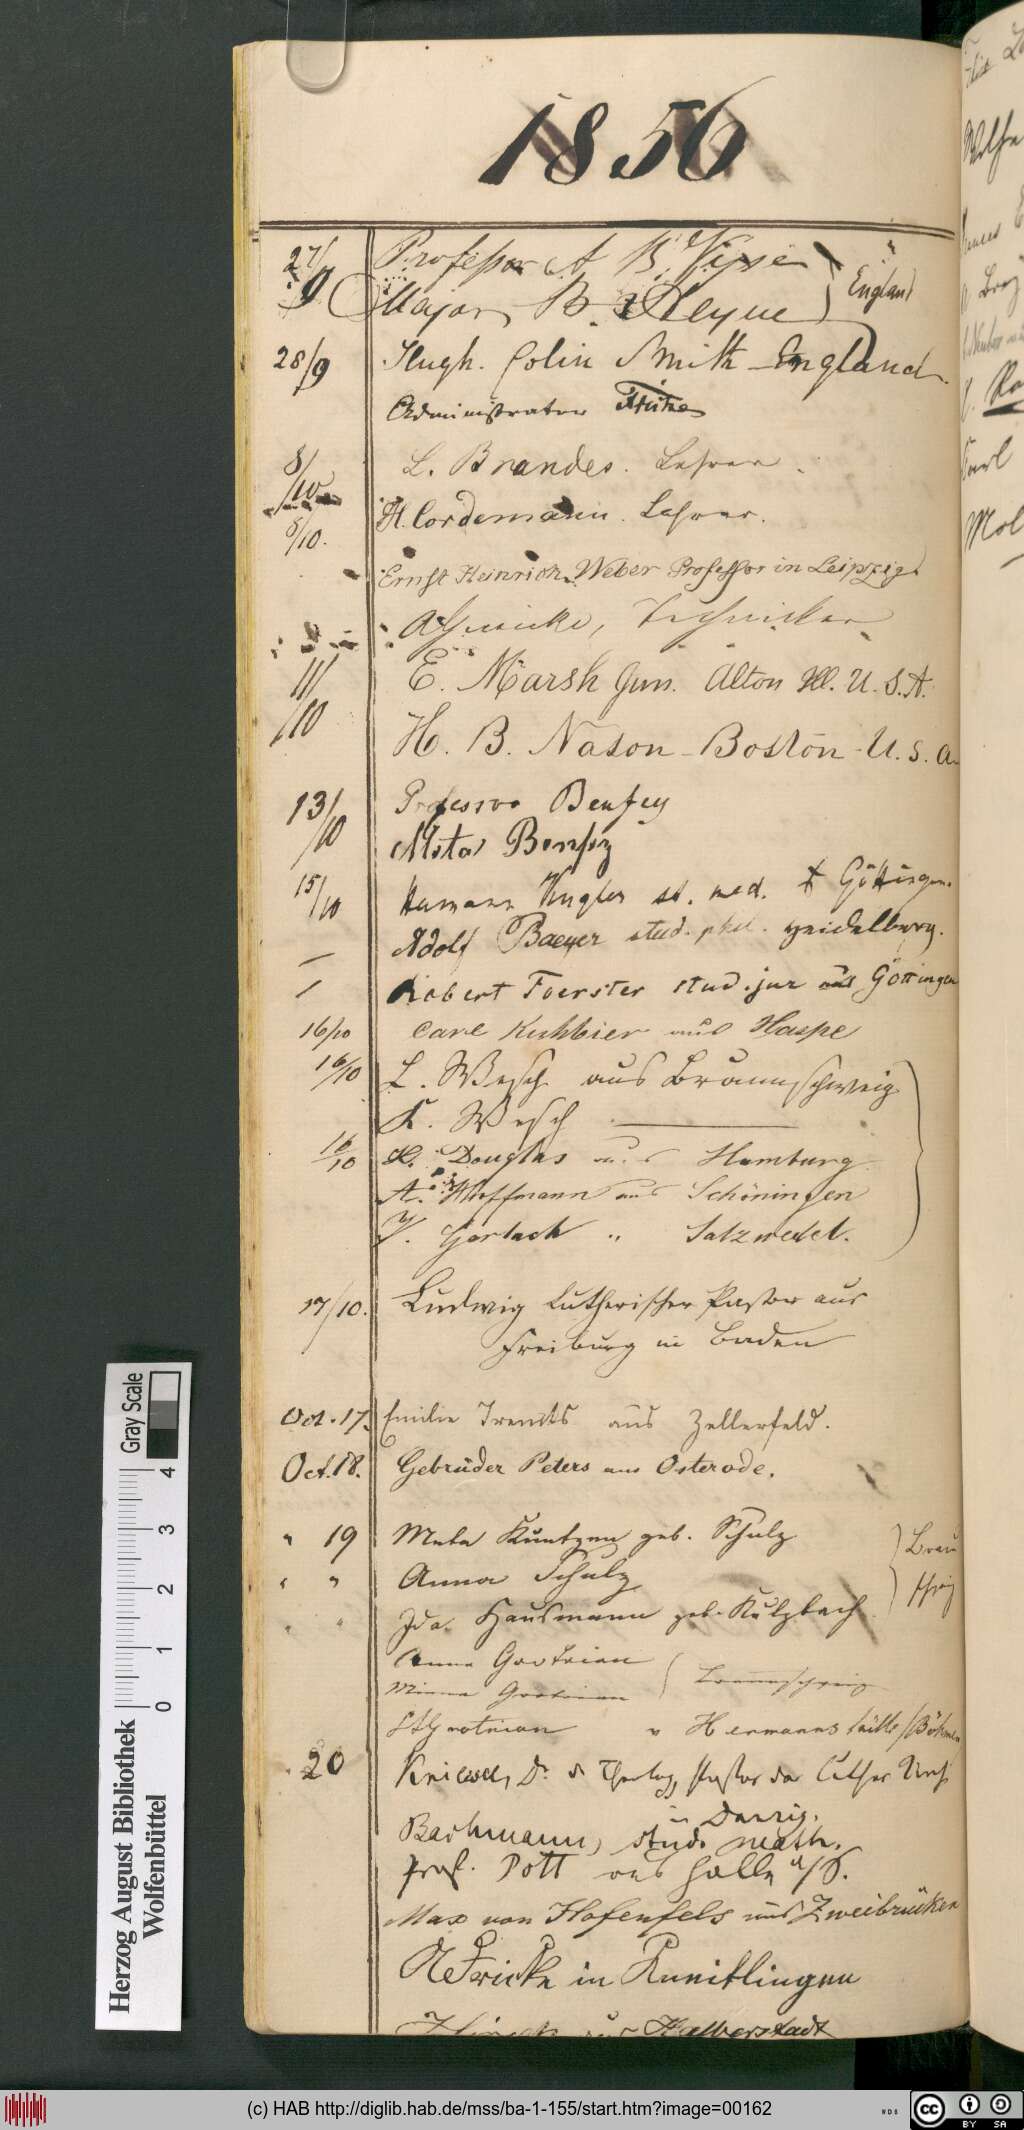 1856
27/9 Professor A B
Major B. Heyne } England
28/9 Hugh. Colin Smith England.
Administrator
8/10 L. Brandes. Lehrer.
8/10. H. Cordemann. Lehrer.
Ernst Heinrich Weber Professor in Leipzig.
Techniker
11/10 E. Marsh Jun. Alton Ill. U.S.A.
H. B. Nason - Boston - U.S.A.
13/10 Professor Benfey
Meta Benfey
15/10 Hermann Kugler st. med. Göttingen.
Adolf Baeyer stud. phil. Heidelberg.
— Robert Foerster stud. jur aus Göttingen
16/10 Carl Kuhbier aus Haspe
16/10 L. Wesch aus Braunschweig
K. Wesch ———
16/10 H. Douglas aus Hamburg
A. Hoffmann aus Schöningen
Gerlach " Salzwedel.
17/10. Ludwig lutherischer Pastor aus
Freiburg in Baden
Oct. 17. Emilie aus Zellerfeld.
Oct. 18. Gebrüder Peters aus Osterode.
" 19 Meta Kuntzen geb. Schulz
" " Anna Schulz
" " Ida Hausmann geb. Kulzbach
Anna Grotrian
Minna Grotrian } Braunschweig
Grotrian v Hermannshütte / Böhmen
20 Kniewel, Dr. d. Theolog, Pastor der luther Kirch
in Danzig.
Bachmann, stud. math.
Prof. Pott aus Halle a/S.
Max von Hofenfels aus Zweibrücken
A Fricke in Kneitlingen
Halberstadt
Gray Scale
0 1 2 3 4
Herzog August Bibliothek
Wolfenbüttel
(c) HAB http://diglib.hab.de/mss/ba-1-155/start.htm?image=00162
WDB
cc BY SA